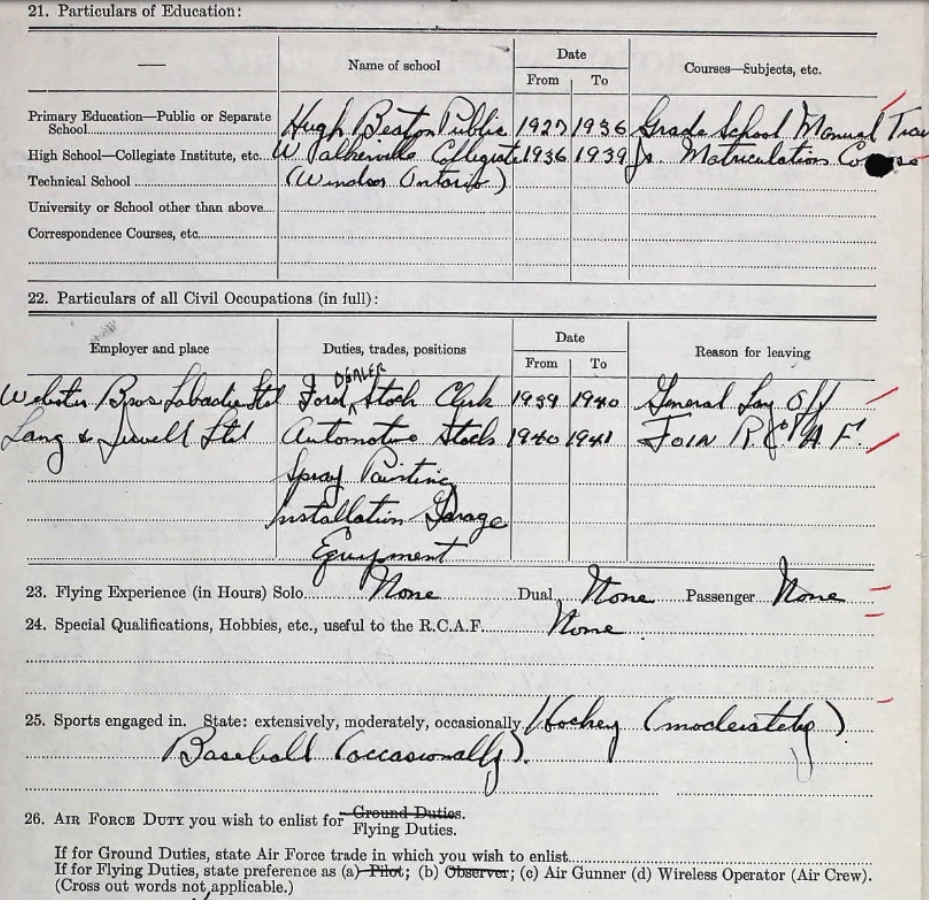 21. Particulars of Education:
— Name of school Date Courses—Subjects, etc.
From To
Primary Education—Public or Separate School Hugh Beaton Public 1927 1936 Grade School Manual
High School—Collegiate Institute, etc. Walkerville Collegiate 1936 1939 Jr. Matriculation Course
Technical School (Windsor Ontario)
University or School other than above
Correspondence Courses, etc.
22. Particulars of all Civil Occupations (in full):
Employer and place Duties, trades, positions Date Reason for leaving
From To
DEALER
Webster Bros Labadie Ltd Ford Stock Clerk 1939 1940 General Lay Off
Lang & Ltd Automotive Stock 1940 1941 JOIN R.C.A.F.
Spray Painting
Installation Garage
Equipment
23. Flying Experience (in Hours) Solo None Dual None Passenger None
24. Special Qualifications, Hobbies, etc., useful to the R.C.A.F. None
25. Sports engaged in. State: extensively, moderately, occasionally Hockey (moderately)
Baseball (occasionally).
26. AIR FORCE DUTY you wish to enlist for Ground Duties.
Flying Duties.
If for Ground Duties, state Air Force trade in which you wish to enlist
If for Flying Duties, state preference as (a) Pilot; (b) Observer; (c) Air Gunner (d) Wireless Operator (Air Crew).
(Cross out words not applicable.)